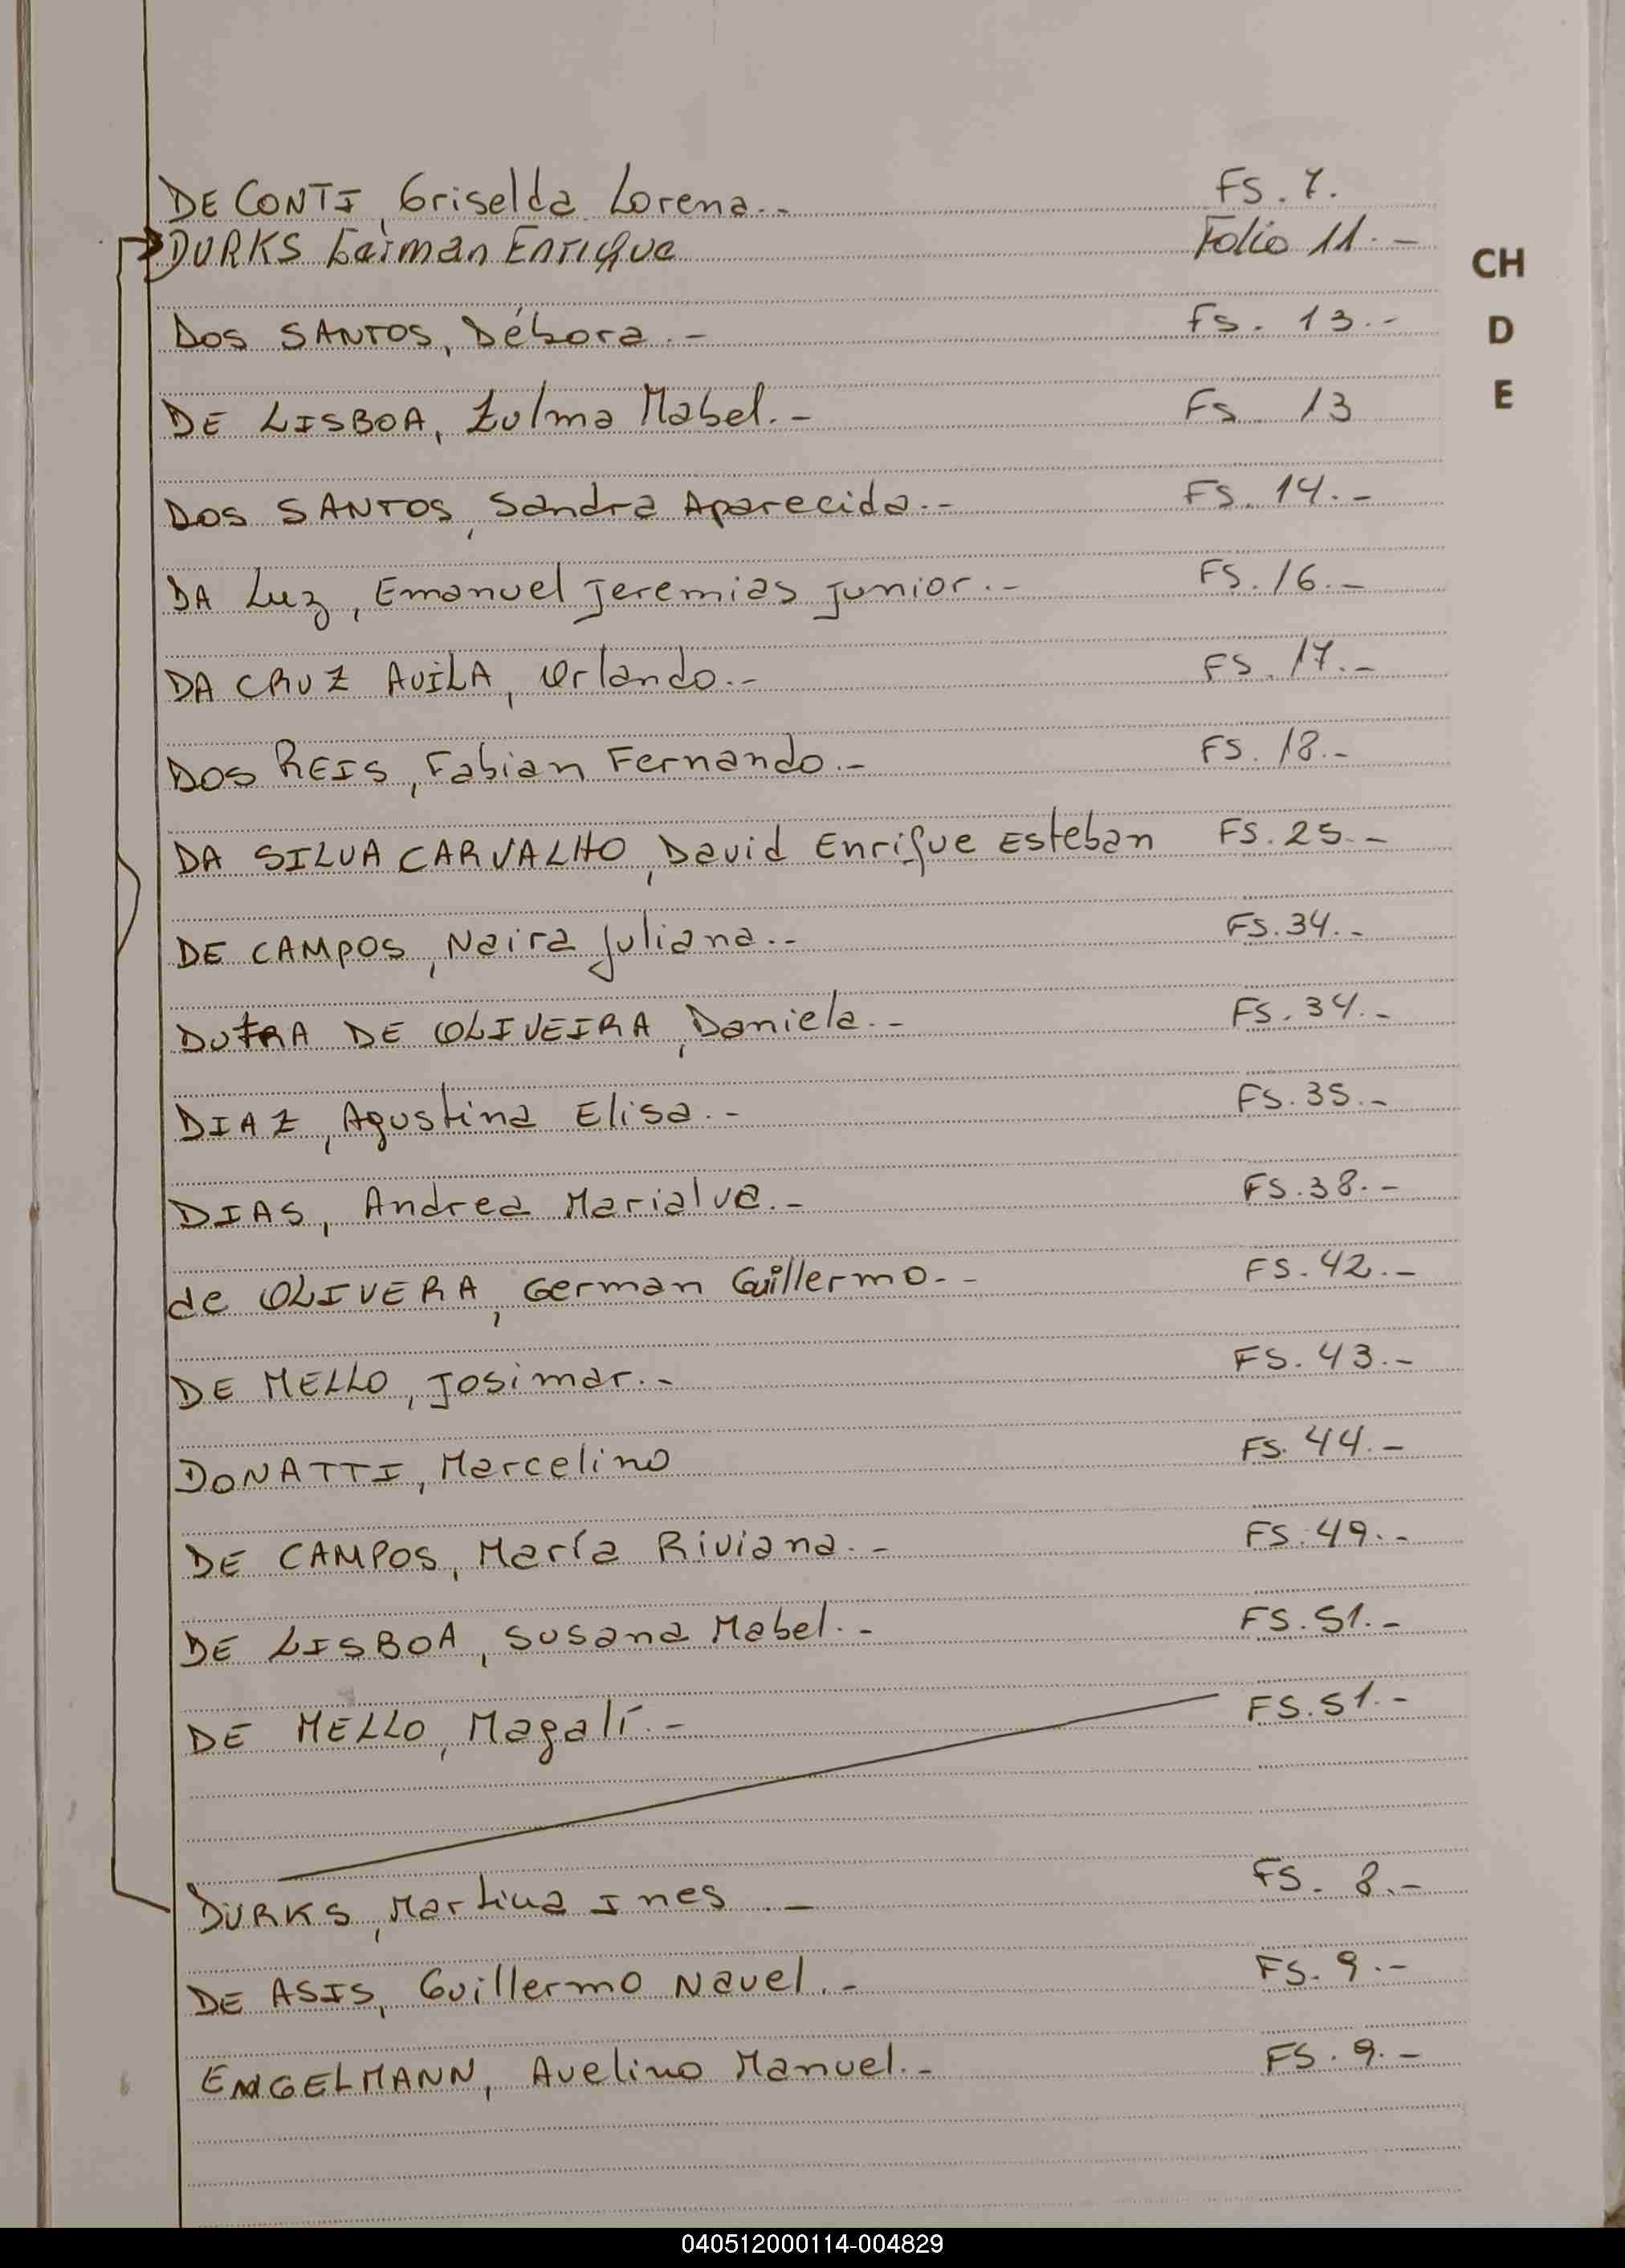 DE CONTI, Griselda Lorena.- FS. 7.
DURKS Enrique Folio 11.-
CH
DOS SANTOS, Débora.- FS. 13.-
D
DE LISBOA, Zulma Mabel.- FS. 13
E
DOS SANTOS, Sandra Aparecida.- FS. 14.-
DA LUZ, Emanuel Jeremias Junior.- FS. 16.-
DA CRUZ AVILA, Orlando.- FS. 17.-
DOS REIS, Fabian Fernando.- FS. 18.-
DA SILVA CARVALHO, David Enrique Esteban FS. 25.-
DE CAMPOS, Naira Juliana.- FS. 34.-
DUTRA DE OLIVEIRA, Daniela.- FS. 34.-
DIAZ, Agustina Elisa.- FS. 35.-
DIAS, Andrea Marialva.- FS. 38.-
de OLIVERA, German Guillermo.- FS. 42.-
DE MELLO, Josimar.- FS. 43.-
DONATTI, Marcelino FS. 44.-
DE CAMPOS, María Riviana.- FS. 49.-
DE LISBOA, Susana Mabel.- FS. 51.-
DE MELLO, Magalí.- FS. 51.-
DURKS, Martina Ines.- FS. 8.-
DE ASIS, Guillermo Nauel.- FS. 9.-
ENGELMANN, Avelino Manuel.- FS. 9.-
040512000114-004829